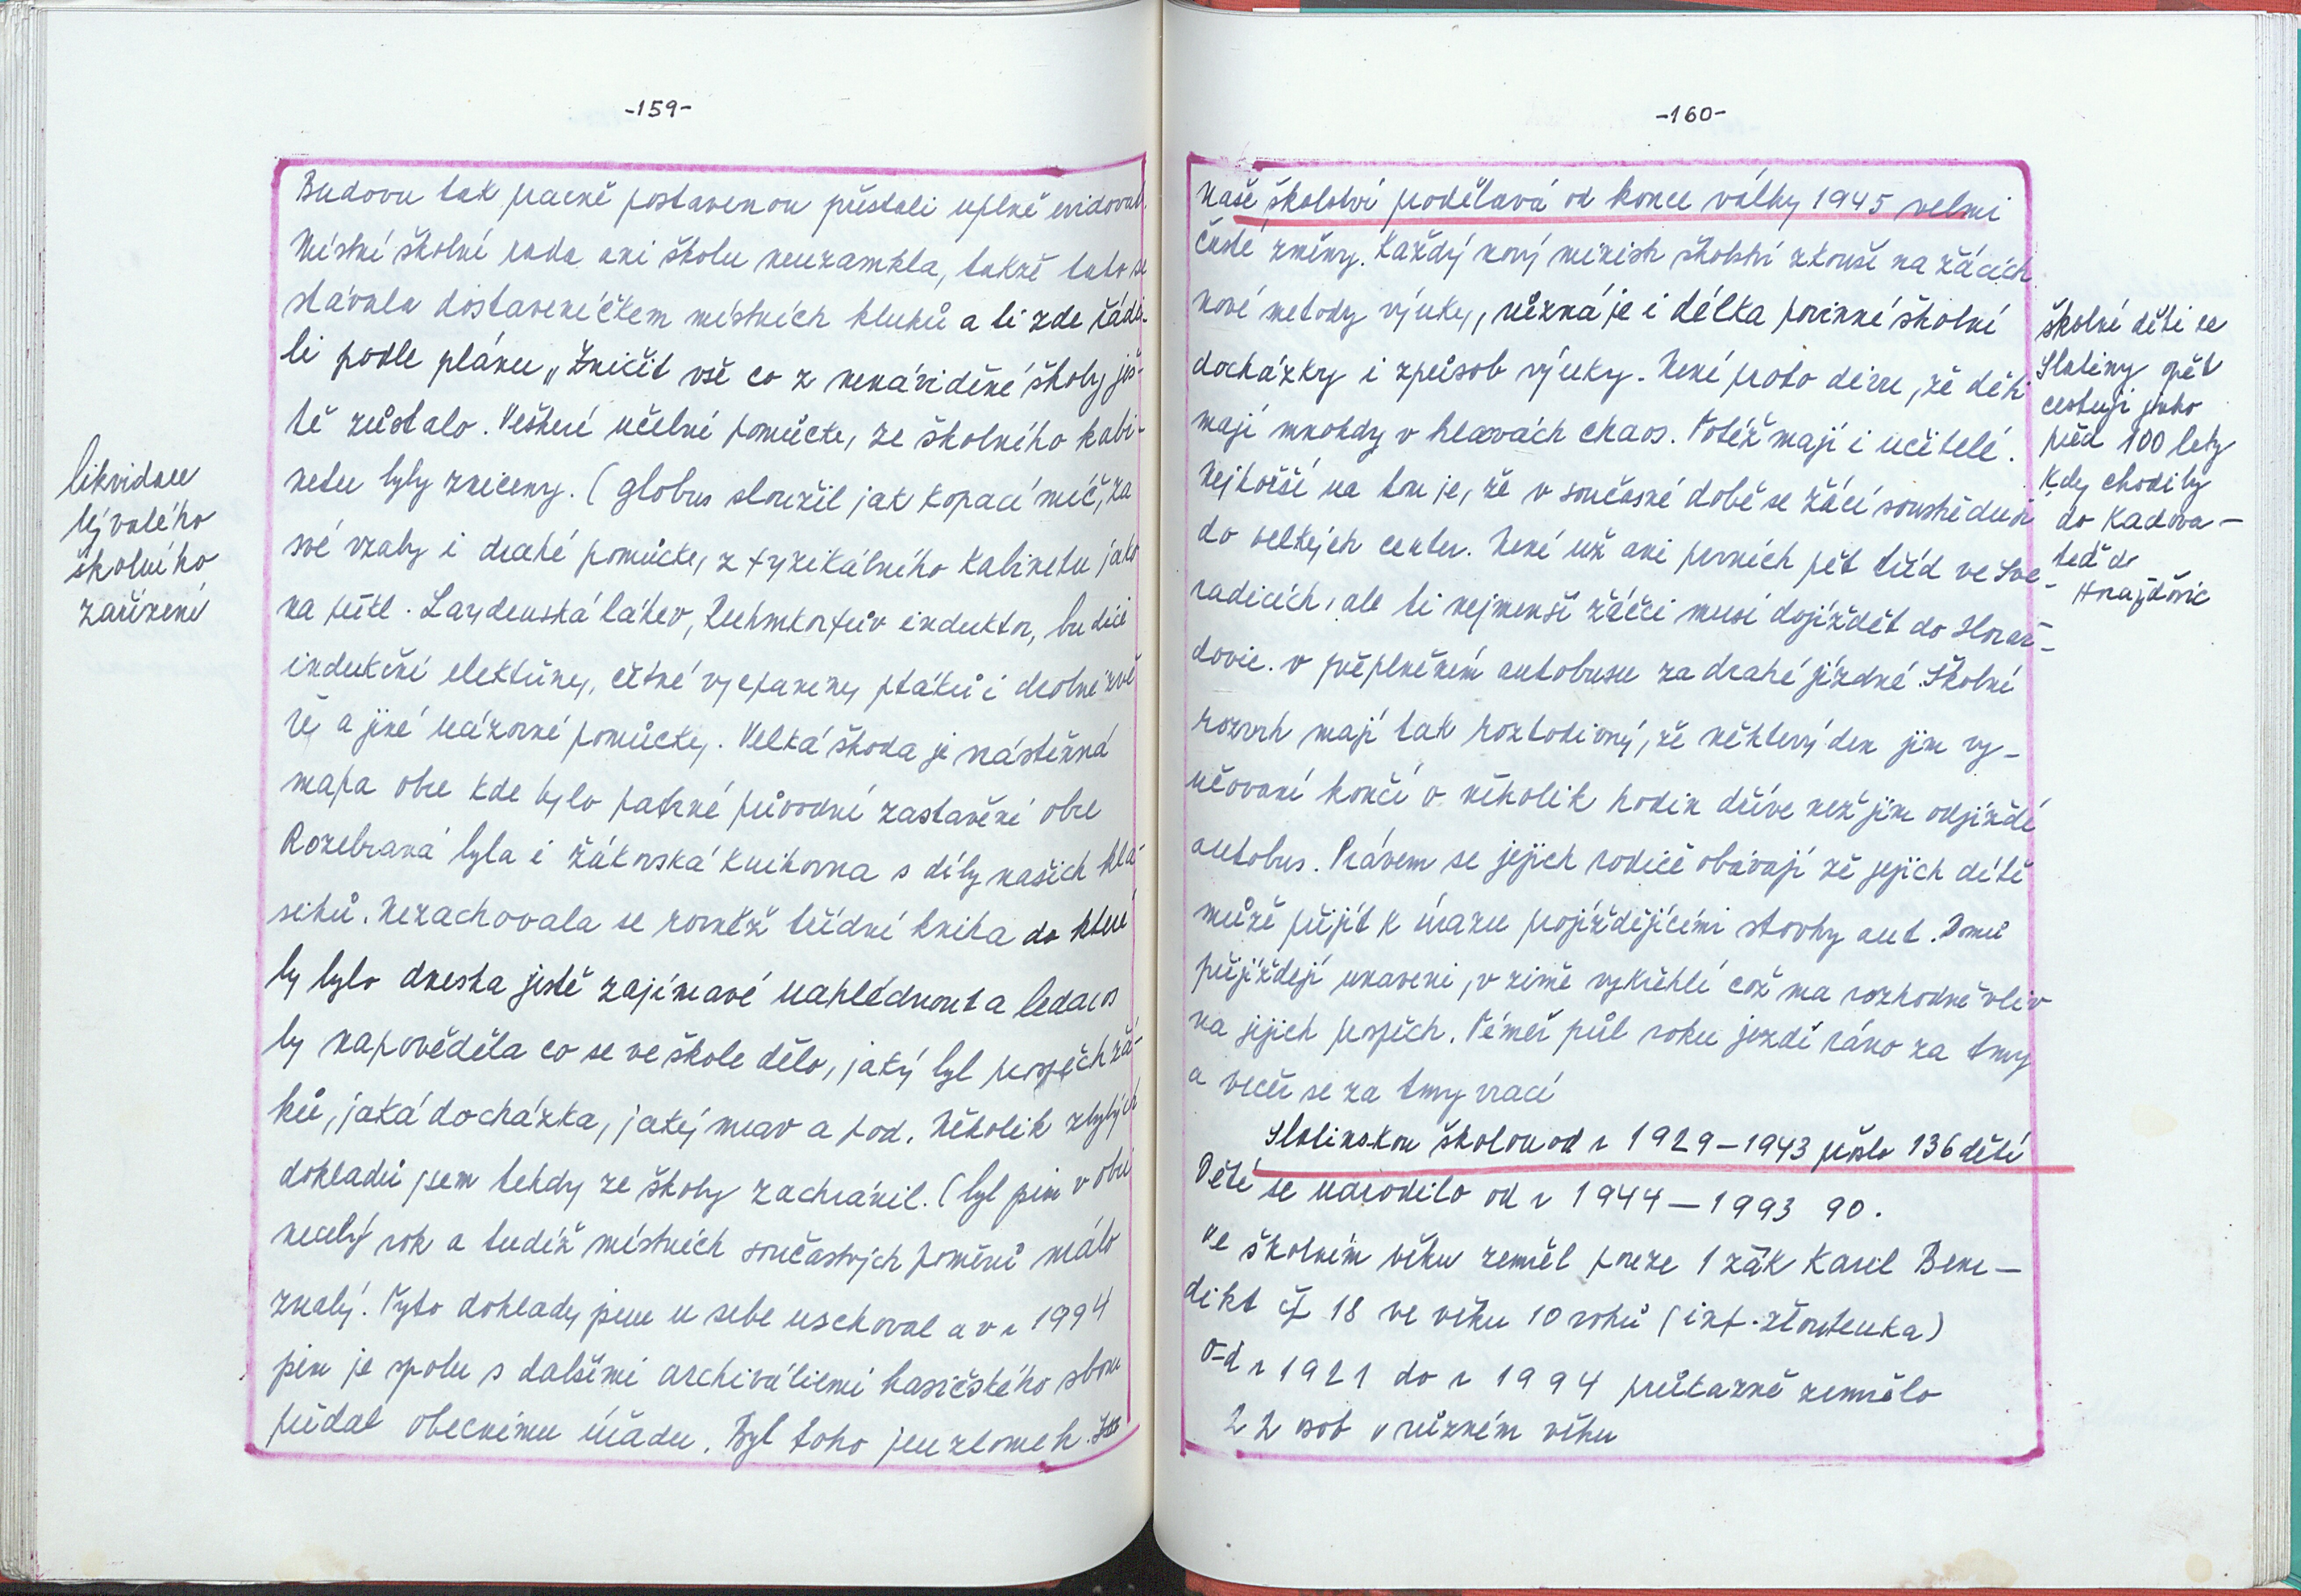 -159-
Budovu tak pracně postavenou přestali uplně evidovat.
Místní školní rada ani školu neuzamkla, takže tato se
stávala dostaveníčkem místních kluků a ti zde řádi-
li podle plánu „Zničit vše co z nenáviděné školy ješ-
tě zůstalo. Veškeré učební pomůcky, ze školního kabi-
netu byly zniceny. (globus sloužil jak kopací míč, za
své vzaly i drahé pomůcky, z fyzikálního kabinetu jako
na př. Laydenská láhev, Ruhmkorfův induktor, budiče
indukční elektřiny, cětné vycpaniny ptáků i drobné zvě
ře a jiné názorné pomůcky. Velká škoda je nástěnná
mapa obce kde bylo patrné původní zastavění obce
Rozebraná byla i žákovská knihovna s díly našich kla-
siků. Nezachovala se rovněž třídní kniha do které
by bylo dneska jistě zajímavé nahlédnout a ledacos
by napověděla co se ve škole dělo, jaký byl prospěch žá-
ků, jaká docházka, jaký mrav a pod. Několik zbylých
dokladů jsem tehdy ze školy zachránil. (byl jsem v obci
necelý rok a tudíž místních součastných poměrů málo
znalý. Tyto doklady jsem u sebe uschoval a v r 1994
jsem je spolu s dalšími archiváliemi hasičského sboru
předal obecnímu úřadu. Byl toho jen zlomek.
likvidace
bývalého
školního
zařízení
-160-
Naše školství prodělává od konce války 1945 velmi
časté změny. Každý nový ministr školství zkouší na žácích
nové metody výuky, různá je i délka povinné školní
docházky i způsob výuky. Není proto divu, že děti
mají mnohdy v hlavách chaos. Totéž mají i učitelé.
Nejhorší na tom je, že v současné době se žáci soustředují
do velkých center. Není už ani prvních pět tříd ve Sve-
radicích, ale ti nejmenší žáčci musí dojíždět do Horaž-
dovic. v přeplněném autobusu za drahé jízdné. Školní
rozvrh mají tak roztodivný, že některý den jim vy-
učování končí o několik hodin dříve než jim odjíždí
autobus. Právem se jejich rodiče obávají že jejich dítě
může přijít k úrazu projíždějícími stovky aut. Domů
přijíždějí unaveni, v zimě vykřehlí což ma rozhodně vliv
na jejich prospěch. Téměř půl roku jezdí ráno za tmy
a večer se za tmy vrací
Slatinskou školou od r 1929-1943 prošlo 136 dětí
Dětí se narodilo od r 1944-1993 90.
Ve školním věku zemřel pouze 1 žák Karel Bene-
dikt čp 18 ve věku 10 roků (inf. žloutenka)
Od r 1921 do r 1994 průkazně zemřelo
22 osob v různém věku
školní děti ze
Slatiny opět
cestují jako
před 100 lety
kdy chodily
do Kadova-
teď do
Horažďovic